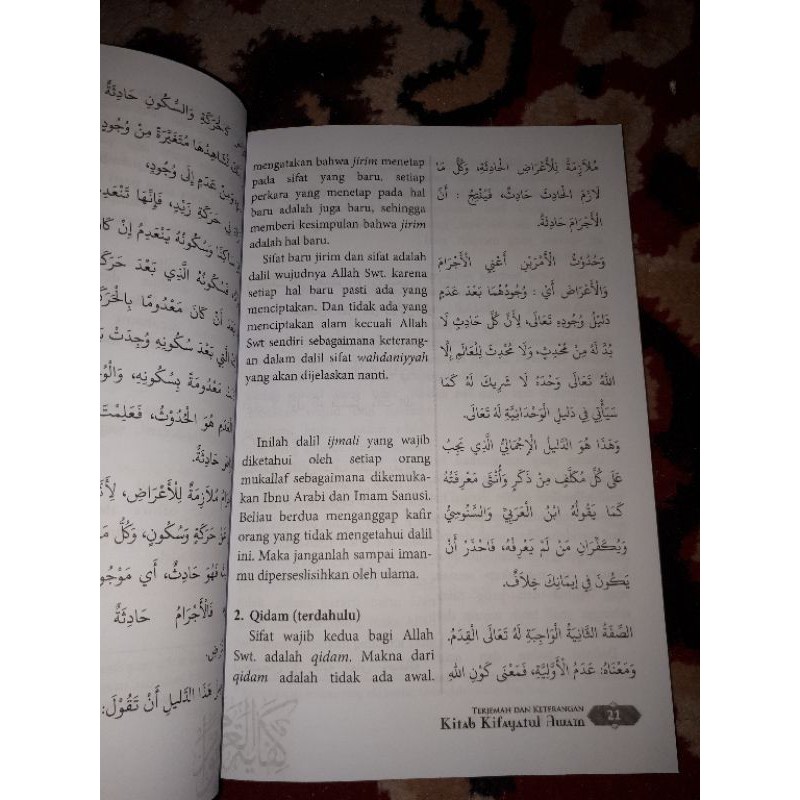 كَالْحَرَكَةِ وَالسُّكُونِ حَادِثَةٌ
مُتَغَيِّرَةً مِنْ وُجُودٍ
وَمِنْ عَدَمٍ إِلَى وُجُودٍ،
حَرَكَةِ زَيْدٍ، فَإِنَّهَا تَنْعَدِمُ
وَسُكُونُهُ يَنْعَدِمُ إِنْ كَانَ
فَسُكُونُهُ الَّذِي بَعْدَ حَرَكَ
أَنْ كَانَ مَعْدُومًا بِالْحَرَكَةِ
بَعْدَ سُكُونِهِ وُجِدَتْ بَ
مَعْدُومَةً بِسُكُونِهِ، وَالْوُجُ
هُوَ الْحُدُوثُ، فَعَلِمْتَ
حَادِثَةٌ.
مُلَازِمَةٌ لِلْأَعْرَاضِ، لِأَنَّ
حَرَكَةٍ وَسُكُونٍ، وَكُلُّ مَ
فَهُوَ حَادِثٌ، أَي مَوْجُو
فَالْأَجْرَامُ حَادِثَةٌ
هَذَا الدَّلِيلِ أَنْ تَقُولَ:
mengatakan bahwa jirim menetap
pada sifat yang baru, setiap
perkara yang menetap pada hal
baru adalah juga baru, sehingga
memberi kesimpulan bahwa jirim
adalah hal baru.
Sifat baru jirim dan sifat adalah
dalil wujudnya Allah Swt. karena
setiap hal baru pasti ada yang
menciptakan. Dan tidak ada yang
menciptakan alam kecuali Allah
Swt sendiri sebagaimana keterang-
an dalam dalil sifat wahdaniyyah
yang akan dijelaskan nanti.
Inilah dalil ijmali yang wajib
diketahui oleh setiap orang
mukallaf sebagaimana dikemuka-
kan Ibnu Arabi dan Imam Sanusi.
Beliau berdua menganggap kafir
orang yang tidak mengetahui dalil
ini. Maka janganlah sampai iman-
mu diperseslisihkan oleh ulama.
2. Qidam (terdahulu)
Sifat wajib kedua bagi Allah
Swt. adalah qidam. Makna dari
qidam adalah tidak ada awal.
مُلَازِمَةٌ لِلْأَعْرَاضِ الْحَادِثَةِ، وَكُلُّ مَا
لَازَمَ الْحَادِثَ حَادِثٌ، فَيُنْتِجُ : أَنَّ
الْأَجْرَامَ حَادِثَةٌ.
وَحُدُوْثُ الْأَمْرَيْنِ أَعْنِي الْأَجْرَامَ
وَالْأَعْرَاضَ أَيْ : وُجُوْدُهُمَا بَعْدَ عَدَمٍ
دَلِيْلُ وُجُوْدِهِ تَعَالَى، لِأَنَّ كُلَّ حَادِثٍ لَا
بُدَّ لَهُ مِنْ مُحْدِثٍ، وَلَا مُحْدِثَ لِلْعَالَمِ إِلَّا
اللهُ تَعَالَى وَحْدَهُ لَا شَرِيكَ لَهُ كَمَا
سَيَأْتِي فِي دَلِيلِ الْوَحْدَانِيَّةِ لَهُ تَعَالَى.
وَهَذَا هُوَ الدَّلِيلُ الْإِجْمَالِيُّ الَّذِي يَجِبُ
عَلَى كُلِّ مُكَلَّفٍ مِنْ ذَكَرٍ وَأُنْثَى مَعْرِفَتُهُ
كَمَا يَقُولُهُ ابْنُ الْعَرَبِيِّ وَالسَّنُوسِيُّ
وَيُكَفِّرَانِ مَنْ لَمْ يَعْرِفْهُ، فَاحْذَرْ أَنْ
يَكُونَ فِي إِيمَانِكَ خِلَافٌ.
الصِّفَةُ الثَّانِيَةُ الْوَاجِبَةُ لَهُ تَعَالَى الْقِدَمُ.
وَمَعْنَاهُ: عَدَمُ الْأَوَّلِيَّةِ، فَمَعْنَى كَوْنِ اللهِ
TERJEMAH DAN KETERANGAN
Kitab Kifayatul Awam
21